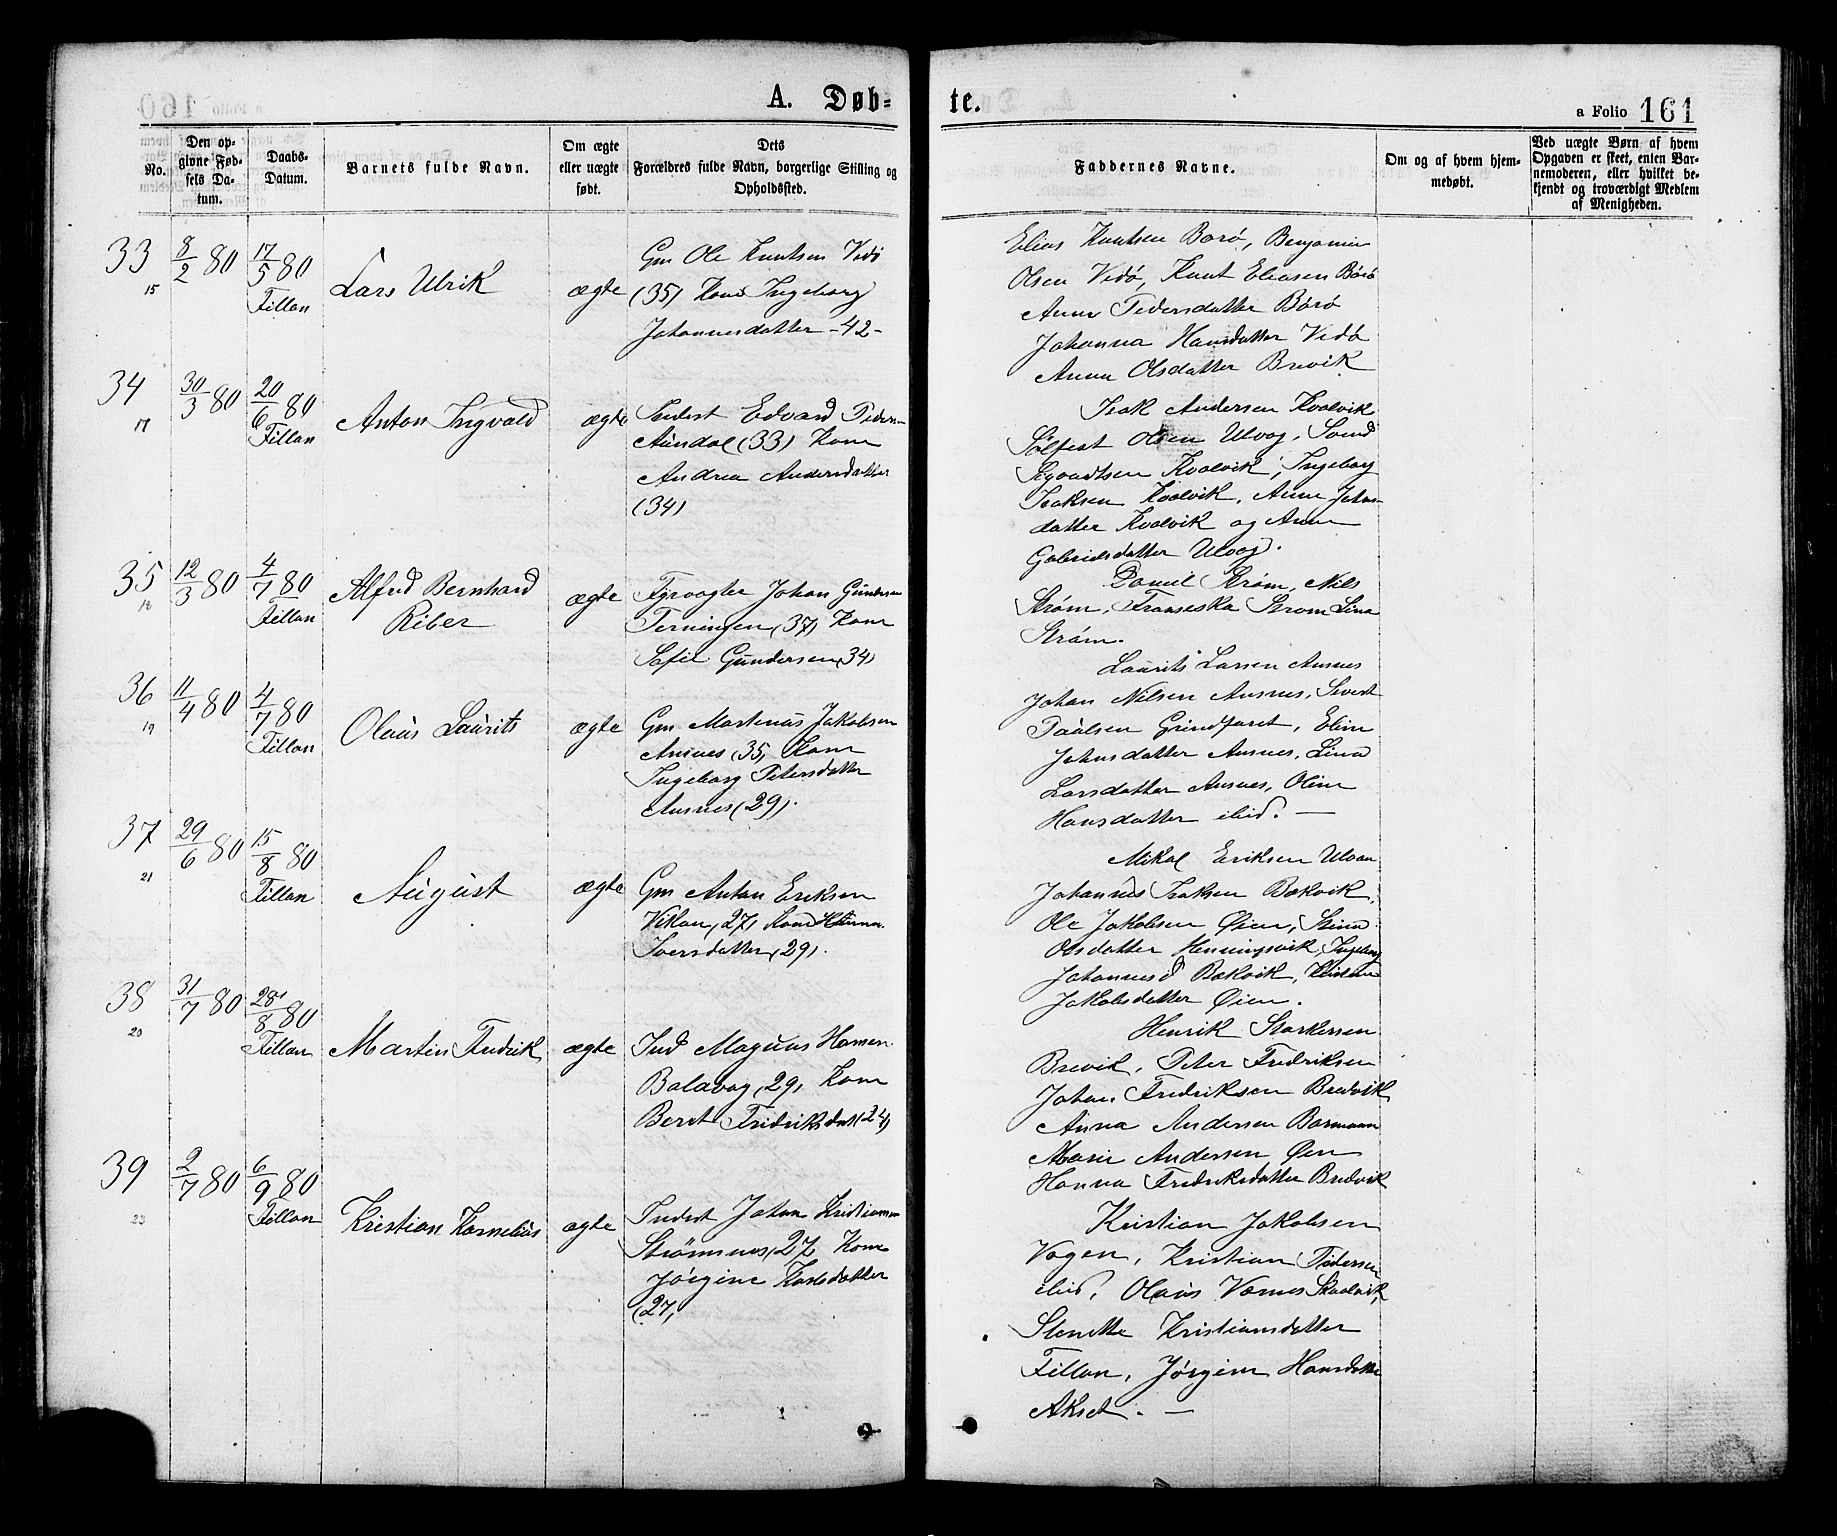 A. Døbte.
a Folio 161
No.
Den opgivne Fødsels Datum.
Daabs-Datum.
Barnets fulde Navn.
Om ægte eller uægte født.
Dets Forældres fulde Navn, borgerlige Stilling og Opholdssted.
Faddernes Navne.
Om og af hvem hjemmedøbt.
Ved uægte Børn af hvem Opgaven er skeet, enten Barnemoderen, eller hvilket bekjendt og troværdigt Medlem af Menigheden.
33
15
8/2 80
17/5 80
Fillan
Lars Ulrik
ægte
Gm Ole Knutsen Vedø
(35) Kone Ingeborg
Johannesdatter -42-
Elias Knutsen Borø, Benjamin
Olsen Vedø, Knut Eliasen Börö
Anne Pedersdatter Börö
Johanna Hansdatter Vedø
Anna Olsdatter Brevik
34
17
30/3 80
20/6 80
Fillan
Anton Ingvald
ægte
Inderst Edvard Pedersen
Aundal (33) Kone
Andrea Andersdatter
(34)
Isak Andersen Kvalvik
Sølfest Olsen Ulvog, Svend
Sigvardtsen Kvalvik, Ingeborg
Isaksen Kvalvik, Anne Johns
datter Kvalvik og Anne
Gabrielsdatter Ulvog.
35
18
12/3 80
4/7 80
Fillan
Alfred Bernhard
Riber
ægte
Fyrvogter Johan Gundersen
Terningen (37) Kone
Sofie Gundersen (34)
Daniel Strøm, Nils
Strøm, Franseska Strøm Lina
Strøm.
36
19
11/4 80
4/7 80
Fillan
Olaus Laurits
ægte
Gm Martinus Jakobsen
Ansnes (35) Kone
Ingeborg Petersdatter
Ansnes (29).
Laurits Larsen Ansnes
Johan Nilsen Ansnes, Sivert
Paulsen Grindfaret, Elen
Johnsdatter Ansnes, Lina
Larsdatter Ansnes, Oline
Hansdatter ibid. —
37
21
29/6 80
15/8 80
Fillan
August
ægte
Gm Anton Eriksen
Vikan (27) Kone Hanna
Iversdatter (29).
Mikal Eriksen Ulvan
Johannes Isaksen Bækvik,
Ole Jakobsen Øien, Stina
Olsdatter Henningsvik, Ingeborg
Johannesd Bækvik,
Jakobsdatter Øien.
38
20
31/7 80
28/8 80
Fillan
Martin Fredrik
ægte
Ind Magnus Hansen
Balavog (29) Kone
Beret Fridriksdat (24)
Henrik Starkersen
Brevik, Peter Fredriksen
Johan Fredriksen Bredvik
Anna Andersen Bormann
Marie Andersen Øen
Hanna Fredriksdatter Bredvik
39
23
2/7 80
6/9 80
Fillan
Kristian Kornelius
ægte
Inderst Johan Kristiansen
Strömsnes, 27, Kone
Jörgine Karlsdatter
(27)
Kristian Jakobsen
Vogen, Kristian Pedersen
ibid, Olaus Værnes Skaalvik,
Stenette Kristiansdatter
Fillan, Jörgine Hansdatter
Akset. —